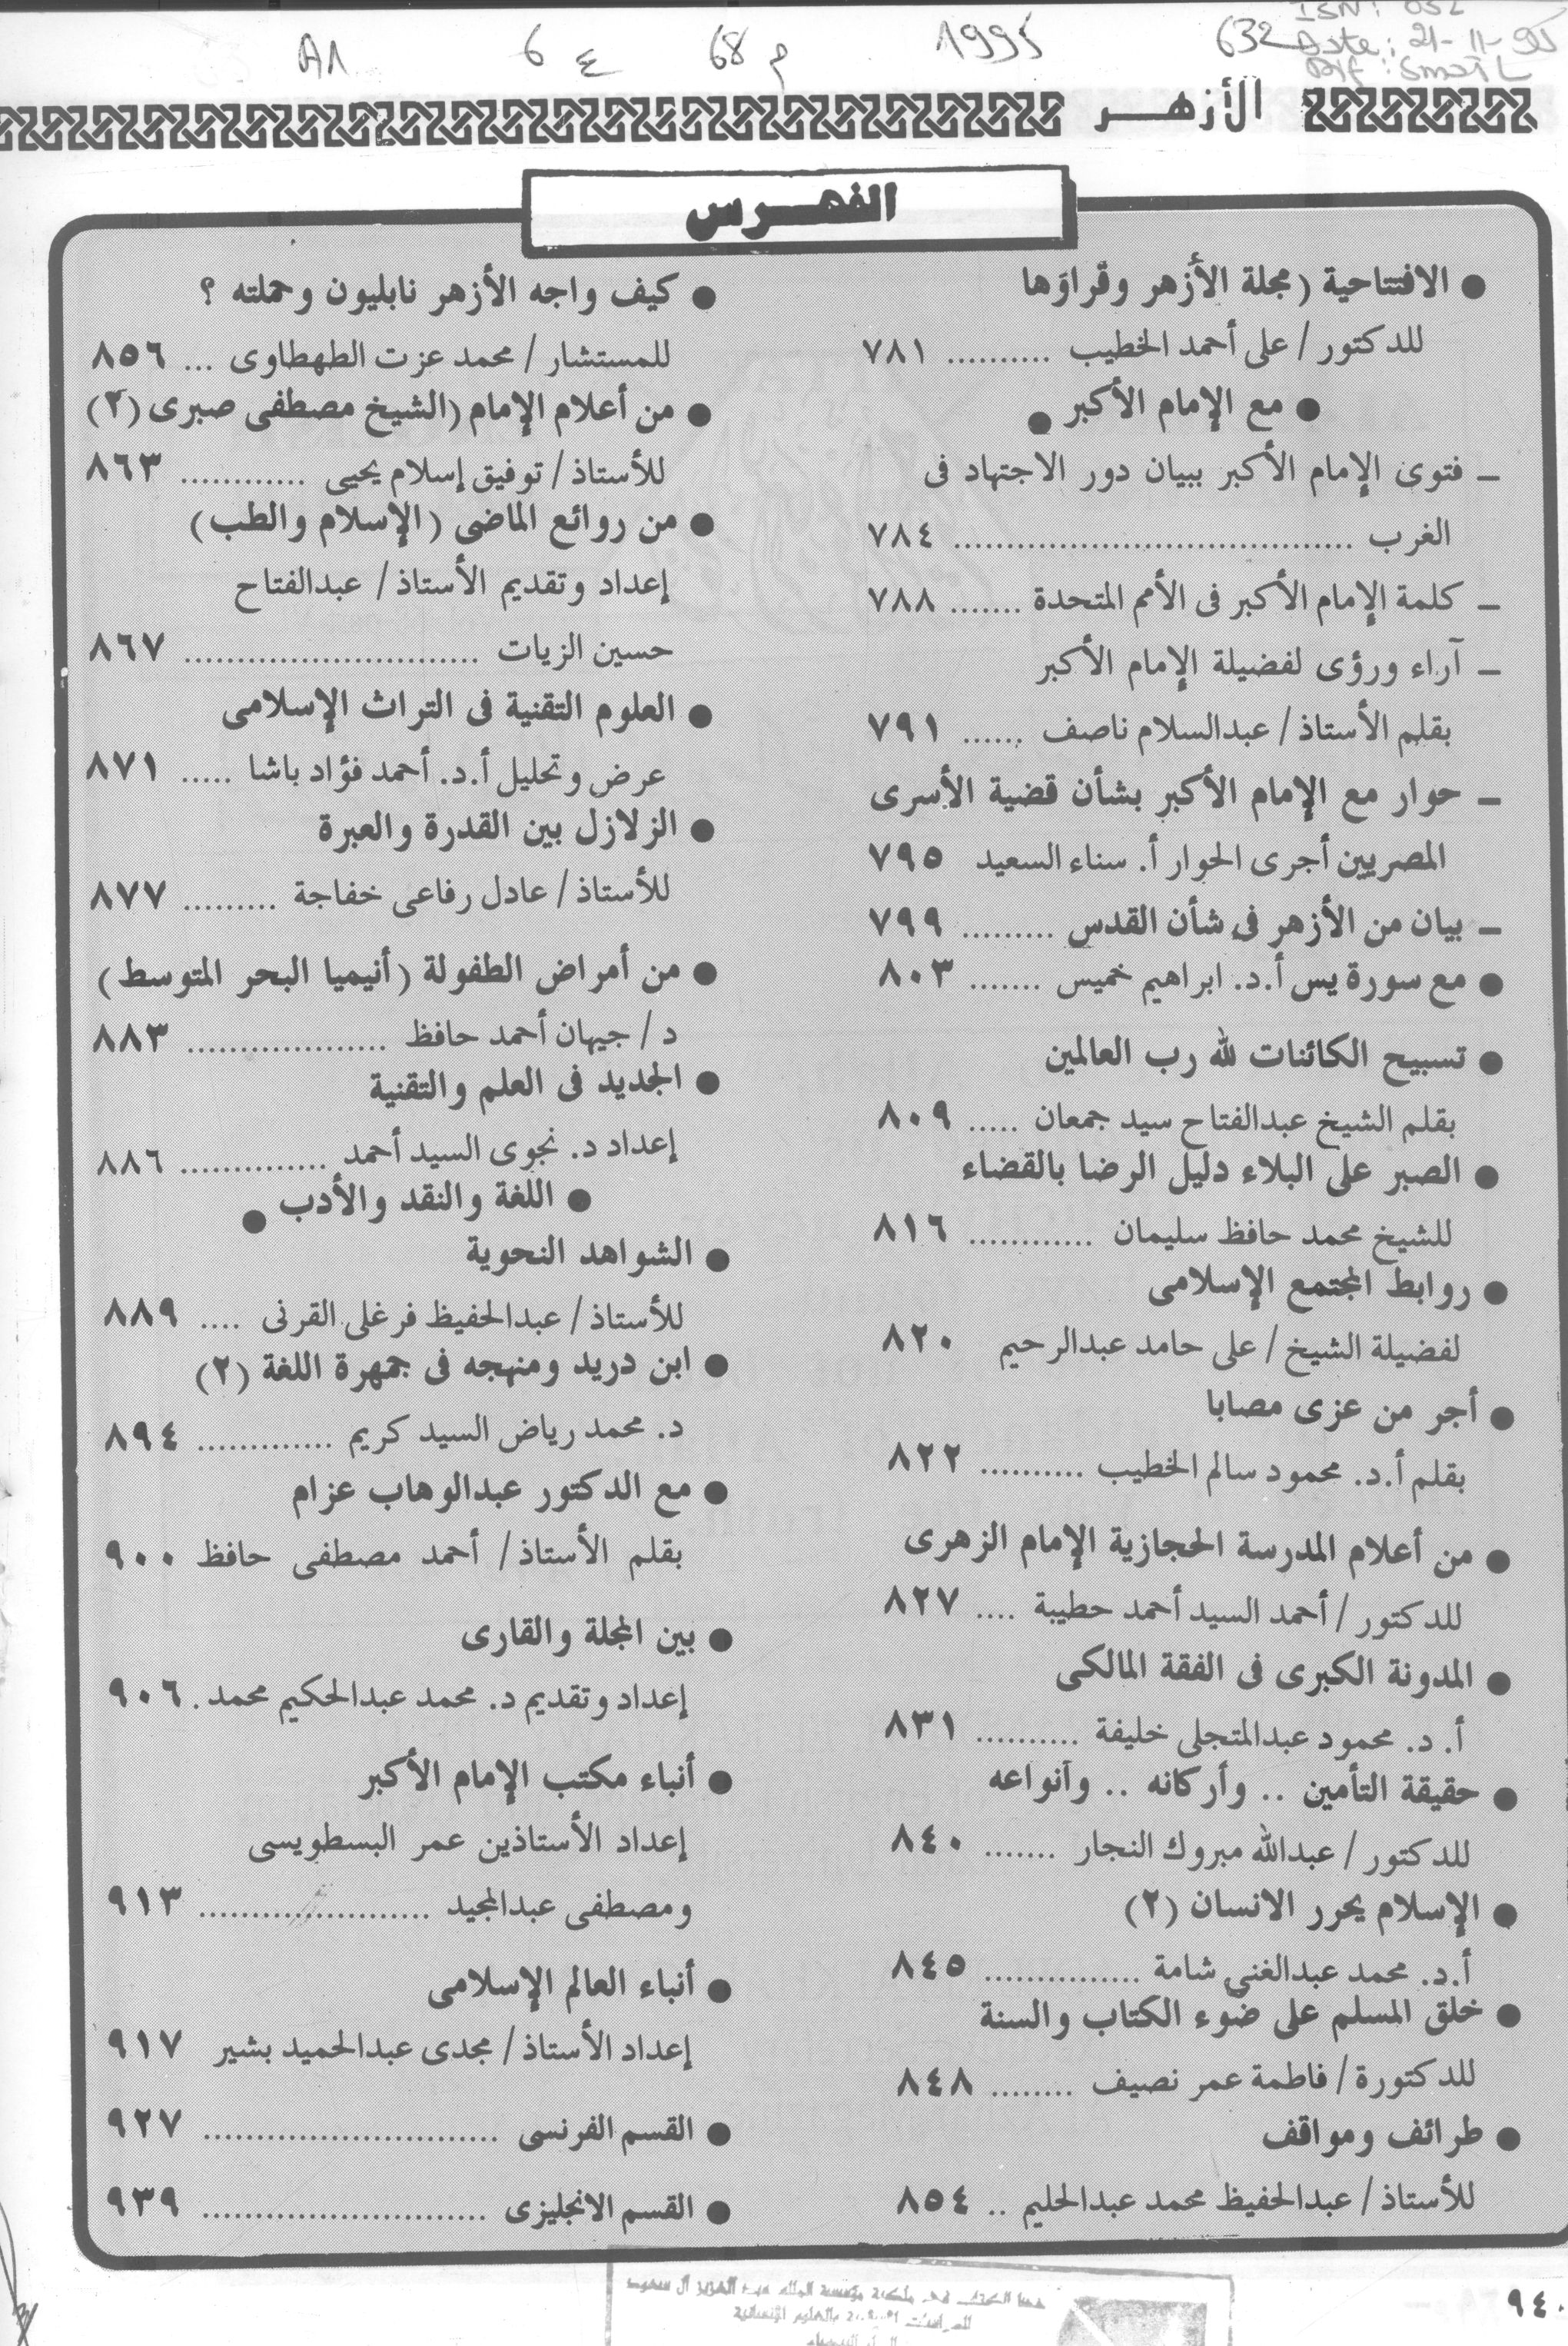 632
1995
م 68
ع 6
A1
Date: 21-11-95
الأزهر
الفهرس
● الافتتاحية (مجلة الأزهر وقراؤها
للدكتور / على أحمد الخطيب .......... ٧٨١
● مع الإمام الأكبر ●
ـ فتوى الإمام الأكبر ببيان دور الاجتهاد فى
الغرب ...................................... ٧٨٤
ـ كلمة الإمام الأكبر فى الأمم المتحدة ....... ٧٨٨
ـ آراء ورؤى لفضيلة الإمام الأكبر
بقلم الأستاذ / عبدالسلام ناصف ...... ٧٩١
ـ حوار مع الإمام الأكبر بشأن قضية الأسرى
المصريين أجرى الحوار أ. سناء السعيد ٧٩٥
ـ بيان من الأزهر فى شأن القدس ......... ٧٩٩
● مع سورة يس أ.د. ابراهيم خميس ....... ٨٠٣
● تسبيح الكائنات لله رب العالمين
بقلم الشيخ عبدالفتاح سيد جمعان ..... ٨٠٩
● الصبر على البلاء دليل الرضا بالقضاء
للشيخ محمد حافظ سليمان ............ ٨١٦
● روابط المجتمع الإسلامى
لفضيلة الشيخ / على حامد عبدالرحيم ٨٢٠
● أجر من عزى مصابا
بقلم أ.د. محمود سالم الخطيب .......... ٨٢٢
● من أعلام المدرسة الحجازية الإمام الزهرى
للدكتور / أحمد السيد أحمد حطيبة .... ٨٢٧
● المدونة الكبرى فى الفقة المالكى
أ. د. محمود عبدالمتجلى خليفة .......... ٨٣١
● حقيقة التأمين .. وأركانه .. وأنواعه
للدكتور / عبدالله مبروك النجار ....... ٨٤٠
● الإسلام يحرر الانسان (٢)
أ.د. محمد عبدالغنى شامة ............... ٨٤٥
● خلق المسلم على ضوء الكتاب والسنة
للدكتورة / فاطمة عمر نصيف ........ ٨٤٨
● طرائف ومواقف
للأستاذ / عبدالحفيظ محمد عبدالحليم .. ٨٥٤
● كيف واجه الأزهر نابليون وحملته ؟
للمستشار / محمد عزت الطهطاوى ... ٨٥٦
● من أعلام الإمام (الشيخ مصطفى صبرى (٢)
للأستاذ / توفيق إسلام يحيى ............ ٨٦٣
● من روائع الماضى (الإسلام والطب)
إعداد وتقديم الأستاذ / عبدالفتاح
حسين الزيات ............................ ٨٦٧
● العلوم التقنية فى التراث الإسلامى
عرض وتحليل أ.د. أحمد فؤاد باشا ..... ٨٧١
● الزلازل بين القدرة والعبرة
للأستاذ / عادل رفاعى خفاجة ......... ٨٧٧
● من أمراض الطفولة (أنيميا البحر المتوسط)
د / جيهان أحمد حافظ ................... ٨٨٣
● الجديد فى العلم والتقنية
إعداد د. نجوى السيد أحمد .............. ٨٨٦
● اللغة والنقد والأدب ●
● الشواهد النحوية
للأستاذ / عبدالحفيظ فرغلى القرنى .... ٨٨٩
● ابن دريد ومنهجه فى جمهرة اللغة (٢)
د. محمد رياض السيد كريم ............. ٨٩٤
● مع الدكتور عبدالوهاب عزام
بقلم الأستاذ / أحمد مصطفى حافظ ٩٠٠
● بين المجلة والقارى
إعداد وتقديم د. محمد عبدالحكيم محمد . ٩٠٦
● أنباء مكتب الإمام الأكبر
إعداد الأستاذين عمر البسطويسى
ومصطفى عبدالمجيد ...................... ٩١٣
● أنباء العالم الإسلامى
إعداد الأستاذ / مجدى عبدالحميد بشير ٩١٧
● القسم الفرنسى ............................ ٩٢٧
● القسم الانجليزى ........................... ٩٣٩
٩٤٠